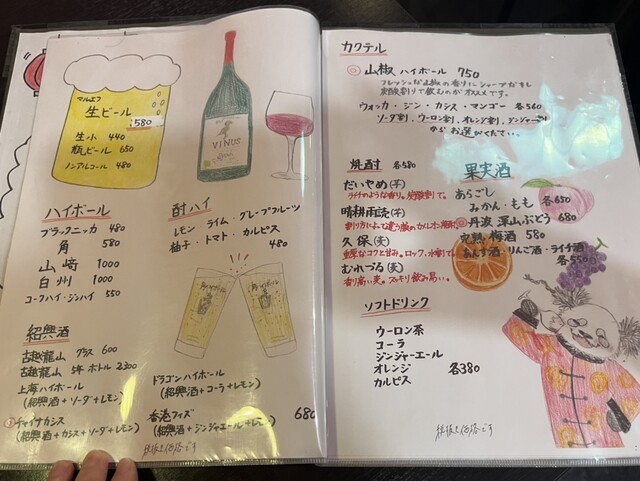 マルエフ
生ビール
580
生小 440
瓶ビール 650
ノンアルコール 480
VINUS
ハイボール
ブラックニッカ 480
角 580
山崎 1000
白州 1000
コークハイ・ジンハイ 550
酎ハイ
レモン ライム グレープフルーツ
柚子・トマト・カルピス
480
紹興酒
古越龍山 グラス 600
古越龍山 5年 ボトル 2300
上海ハイボール
(紹興酒+ソーダ+レモン)
チャイナカシス
(紹興酒+カシス+ソーダ+レモン)
ドラゴンハイボール
(紹興酒+コーラ+レモン)
香港フィズ
(紹興酒+ジンジャエール+レモン)
680
税抜き価格です
カクテル
山椒ハイボール 750
フレッシュな山椒の香りにシャープな
炭酸割りで飲むのがオススメです。
ウォッカ・ジン・カシス・マンゴー 各560
ソーダ割、ウーロン割、オレンジ割、ジンジャー割
からお選びください。
焼酎 各580
だいやめ(芋)
ライチのような香り。炭酸割で。
晴耕雨読(芋)
久保(麦)
ロック、水割で。
むれづる(麦)
香り高い麦。スッキリ飲み易い。
果実酒
あらごし
みかん・もも 各650
丹波 深山ぶどう 680
完熟 梅酒 580
あんず酒・りんご酒・ライチ酒
各550
ソフトドリンク
ウーロン茶
コーラ
ジンジャーエール
オレンジ 各380
カルピス
税抜き価格です